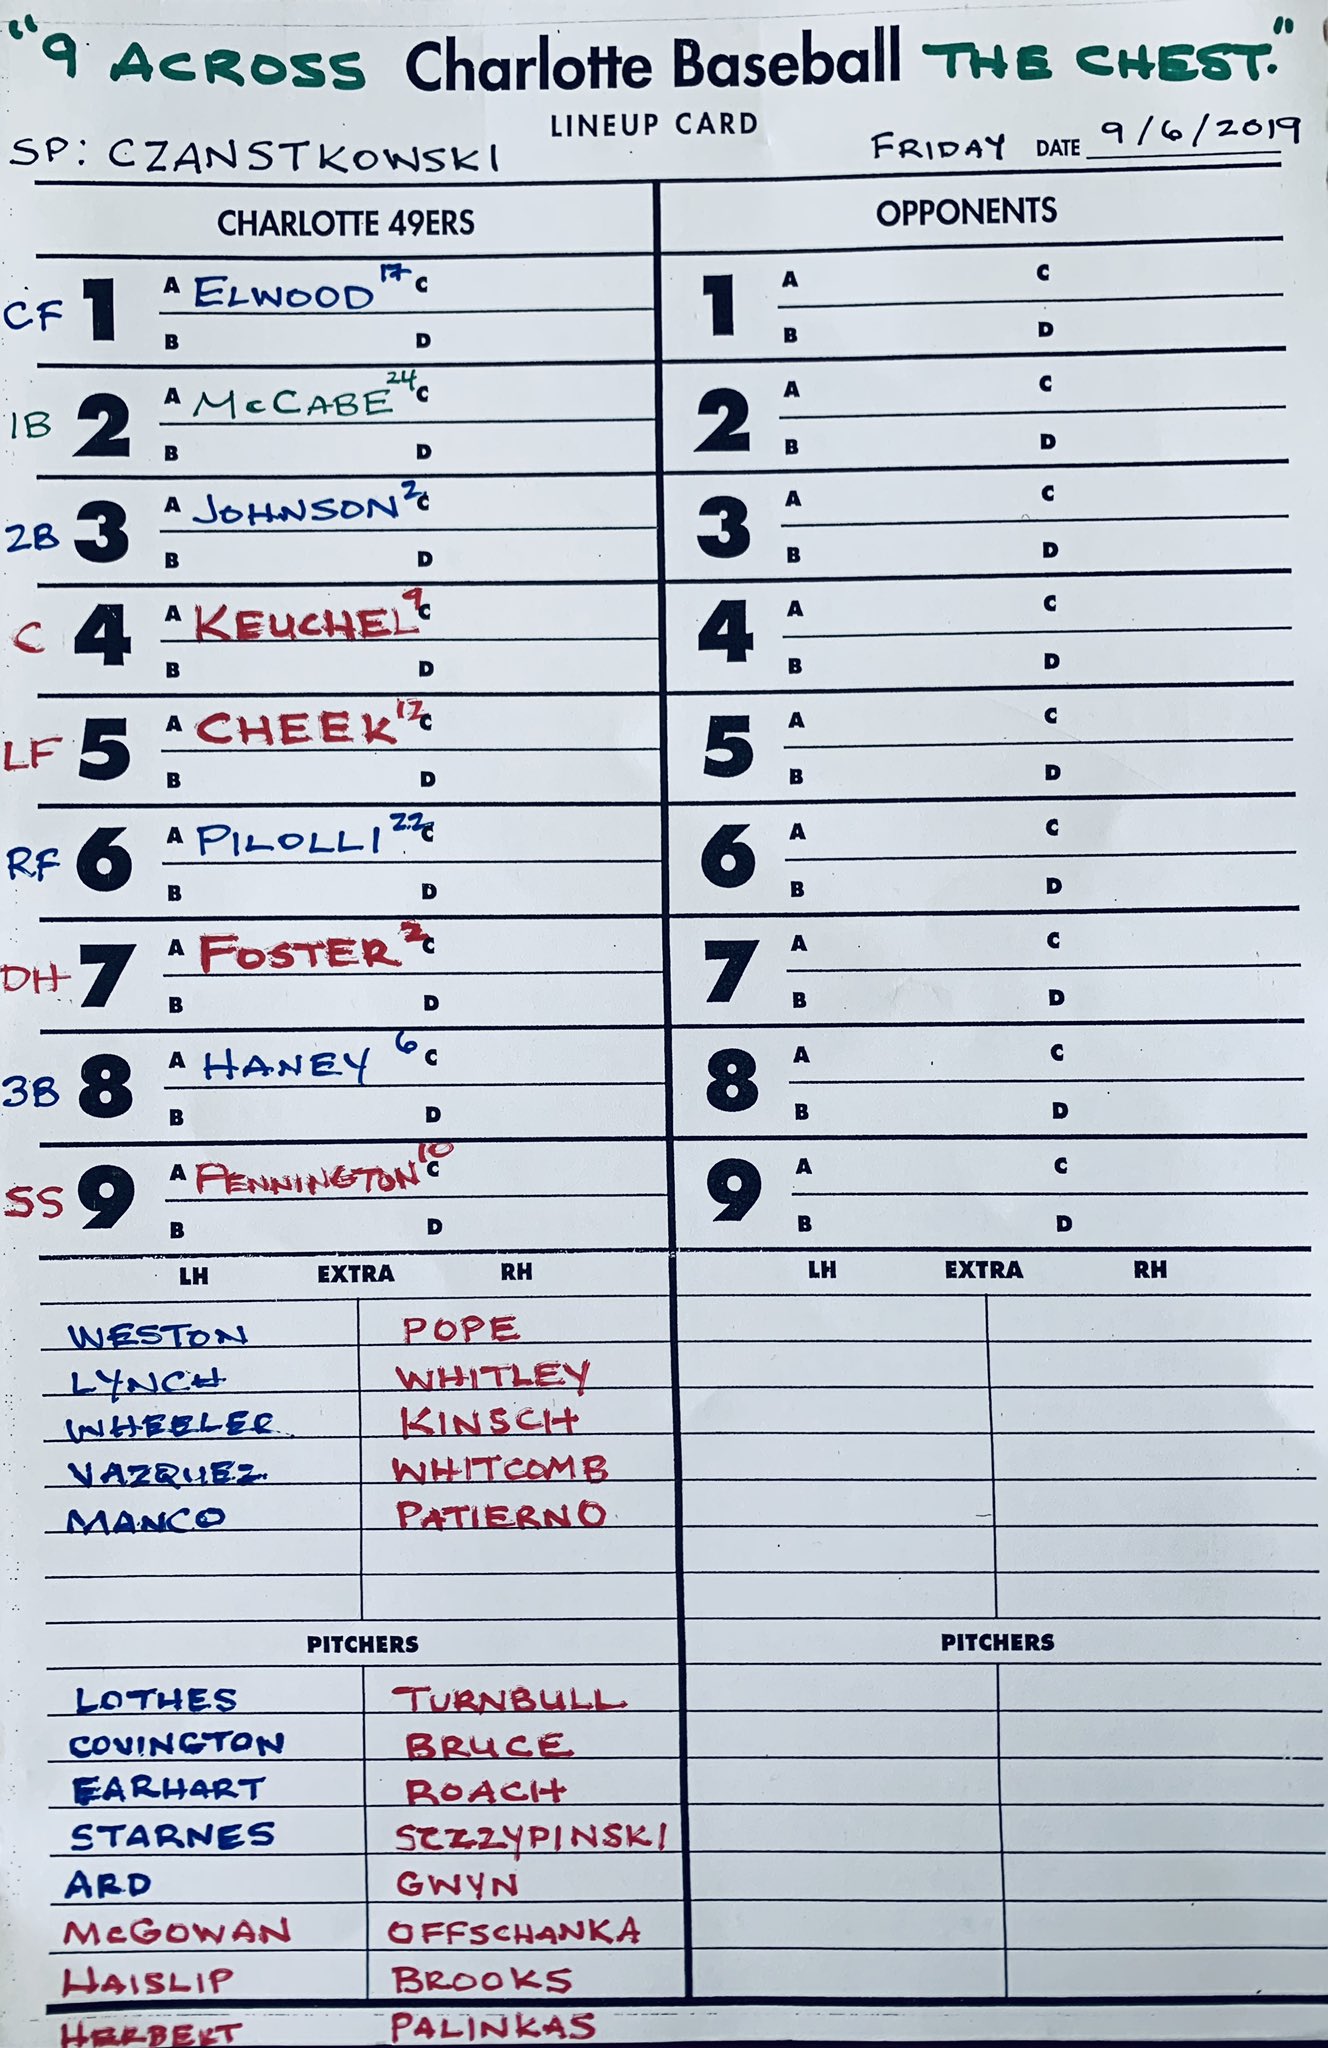 "9 ACROSS Charlotte Baseball THE CHEST."
LINEUP CARD
SP: CZANSTKOWSKI FRIDAY DATE 9/6/2019
CHARLOTTE 49ERS OPPONENTS
CF 1 A ELWOOD 17 C 1 A C
B D B D
1B 2 A McCABE 24 C 2 A C
B D B D
2B 3 A JOHNSON 2 C 3 A C
B D B D
C 4 A KEUCHEL 9 C 4 A C
B D B D
LF 5 A CHEEK 12 C 5 A C
B D B D
RF 6 A PILOLLI 22 C 6 A C
B D B D
DH 7 A FOSTER C 7 A C
B D B D
3B 8 A HANEY 6 C 8 A C
B D B D
SS 9 A PENNINGTON 10 C 9 A C
B D B D
LH EXTRA RH LH EXTRA RH
WESTON POPE
LYNCH WHITLEY
WHEELER KINSCH
VAZQUEZ WHITCOMB
MANCO PATIERNO
PITCHERS PITCHERS
LOTHES TURNBULL
COVINGTON BRUCE
EARHART ROACH
STARNES
ARD GWYN
McGOWAN OFFSCHANKA
HAISLIP BROOKS
HERBERT PALINKAS